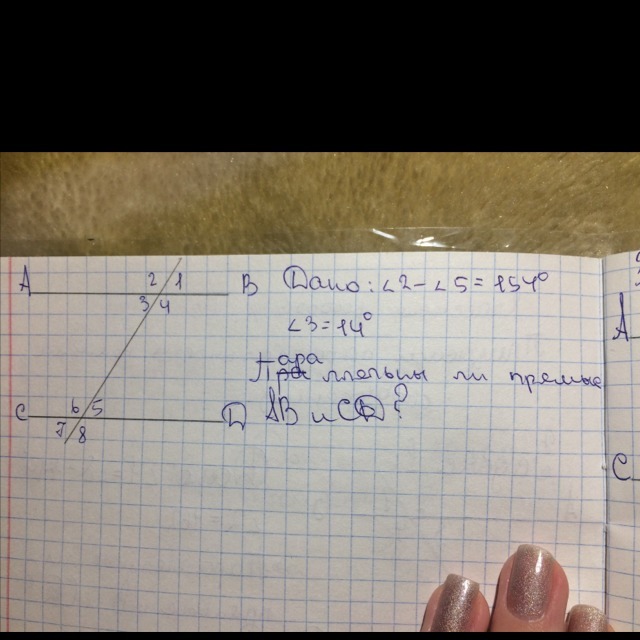 A 2 1 B Дано: ∠2-∠5=154°
3 4
∠3=14°
Параллельны ли прямые
AB и CD?
C 6 5 D
7 8
A
C